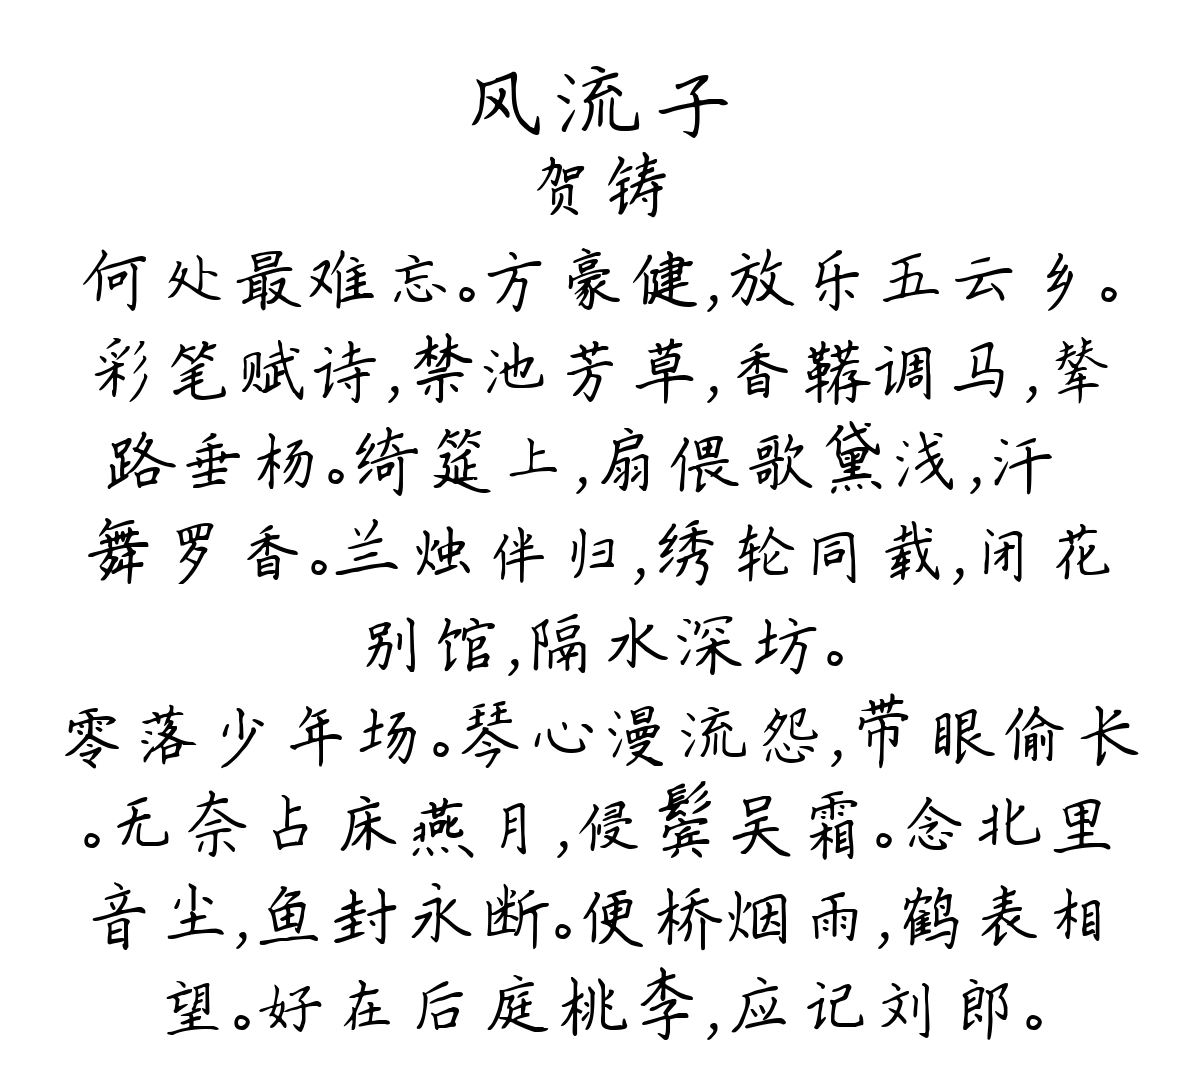 风流子
贺铸
何处最难忘。方豪健,放乐五云乡。
彩笔赋诗,禁池芳草,香鞯调马,辇
路垂杨。绮筵上,扇偎歌黛浅,汗
舞罗香。兰烛伴归,绣轮同载,闭花
别馆,隔水深坊。
零落少年场。琴心漫流怨,带眼偷长
。无奈占床燕月,侵鬓吴霜。念北里
音尘,鱼封永断。便桥烟雨,鹤表相
望。好在后庭桃李,应记刘郎。